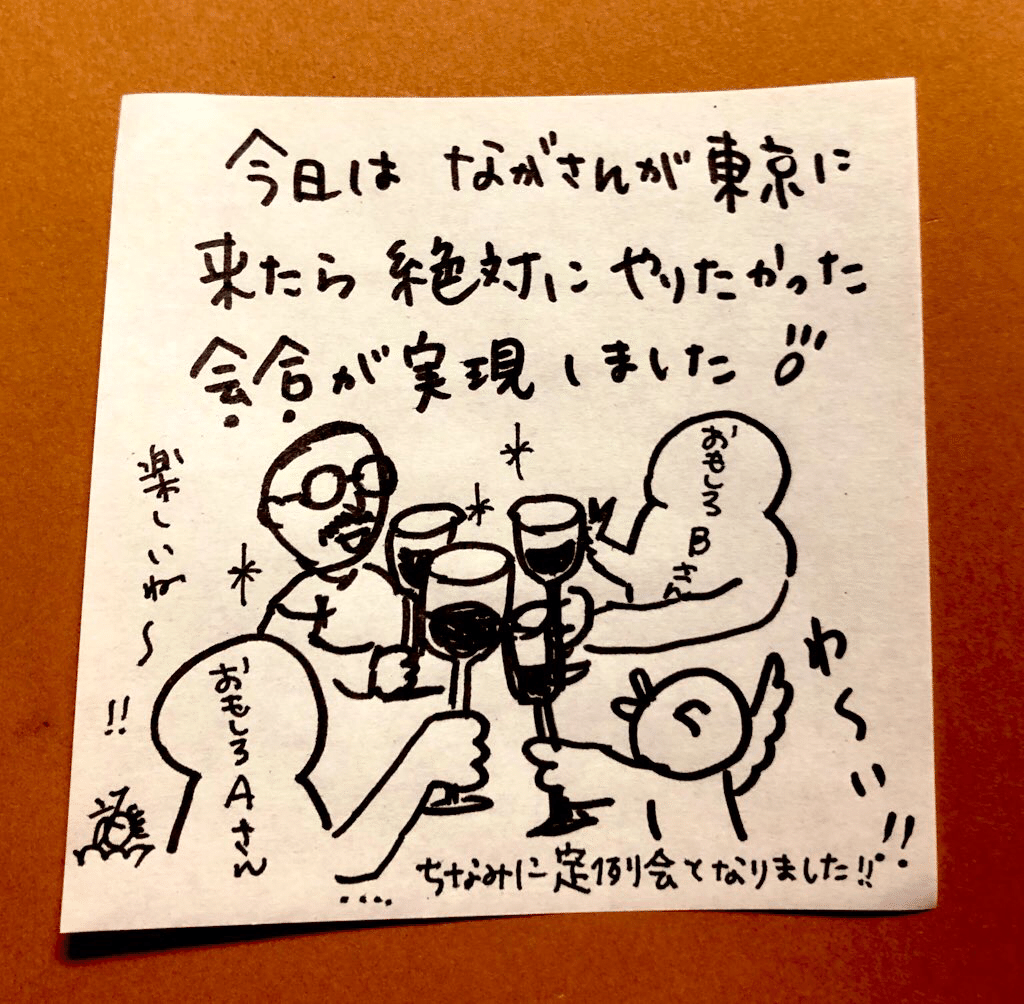 今日は ながさんが東京に
来たら 絶対に やりたかった
会合が実現しました!!!
楽しいね〜!!
おもしろBさん
おもしろAさん
わ〜い!!
ちなみに定例会となりました!!
....